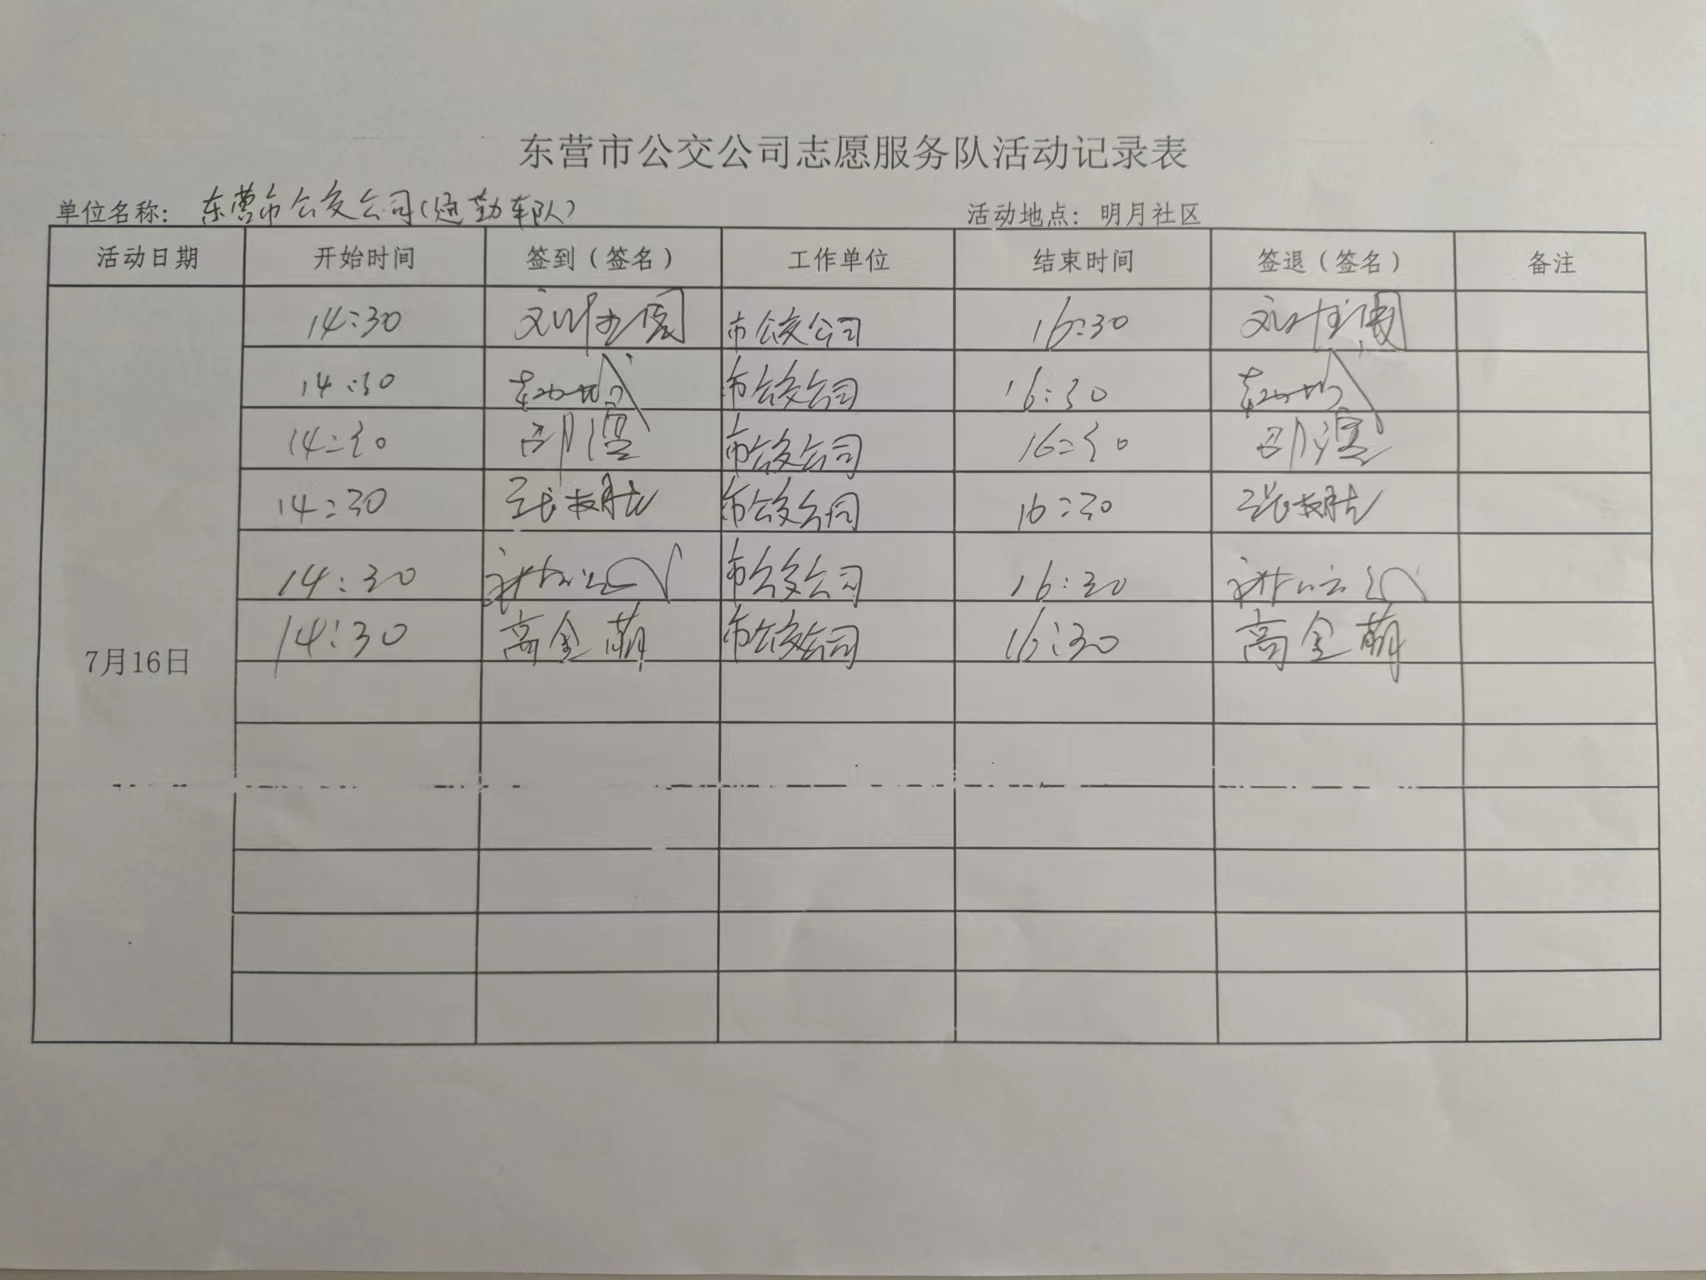 东营市公交公司志愿服务队活动记录表
单位名称: 东营市公交公司(通勤车队) 活动地点: 明月社区
活动日期 开始时间 签到(签名) 工作单位 结束时间 签退(签名) 备注
14:30 市公交公司 16:30
14:30 市公交公司 16:30
14:30 市公交公司 16:30
14:30 市公交公司 16:30
14:30 市公交公司 16:30
7月16日 14:30 高金萌 市公交公司 16:30 高金萌